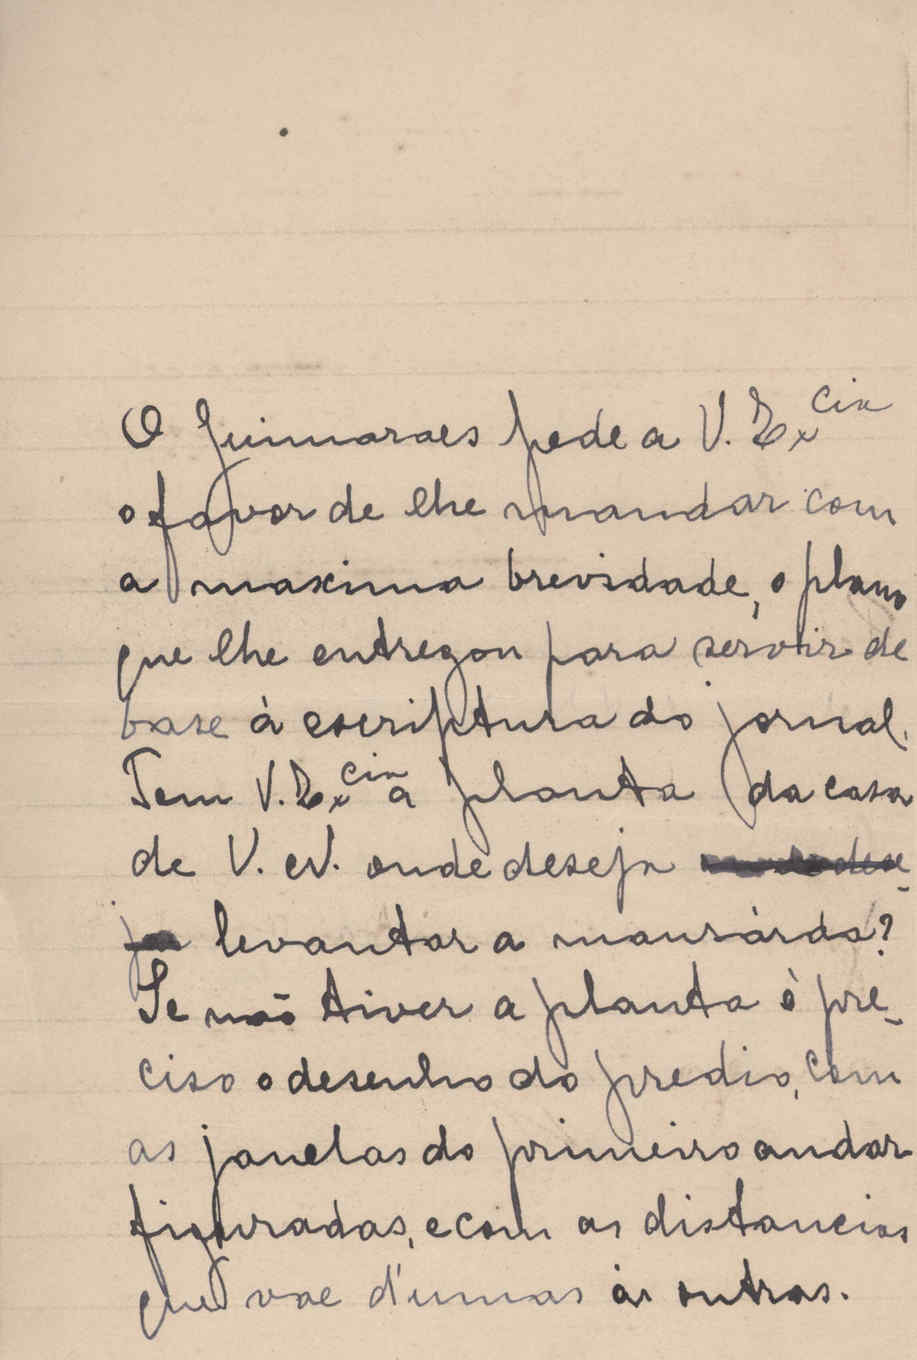 O Guimaraes pede a V. Ex.cia
o favor de lhe mandar com
a maxima brevidade, o plano
que lhe entregou para servir de
base á escriptura do jornal.
Tem V. Ex.cia a planta da casa
de V. N. onde deseja
levantar a mansárda?
Se não tiver a planta é pre-
ciso o desenho do predio, com
as janelas do primeiro andar
figuradas, e com as distancias
que vae d'umas ás outras.